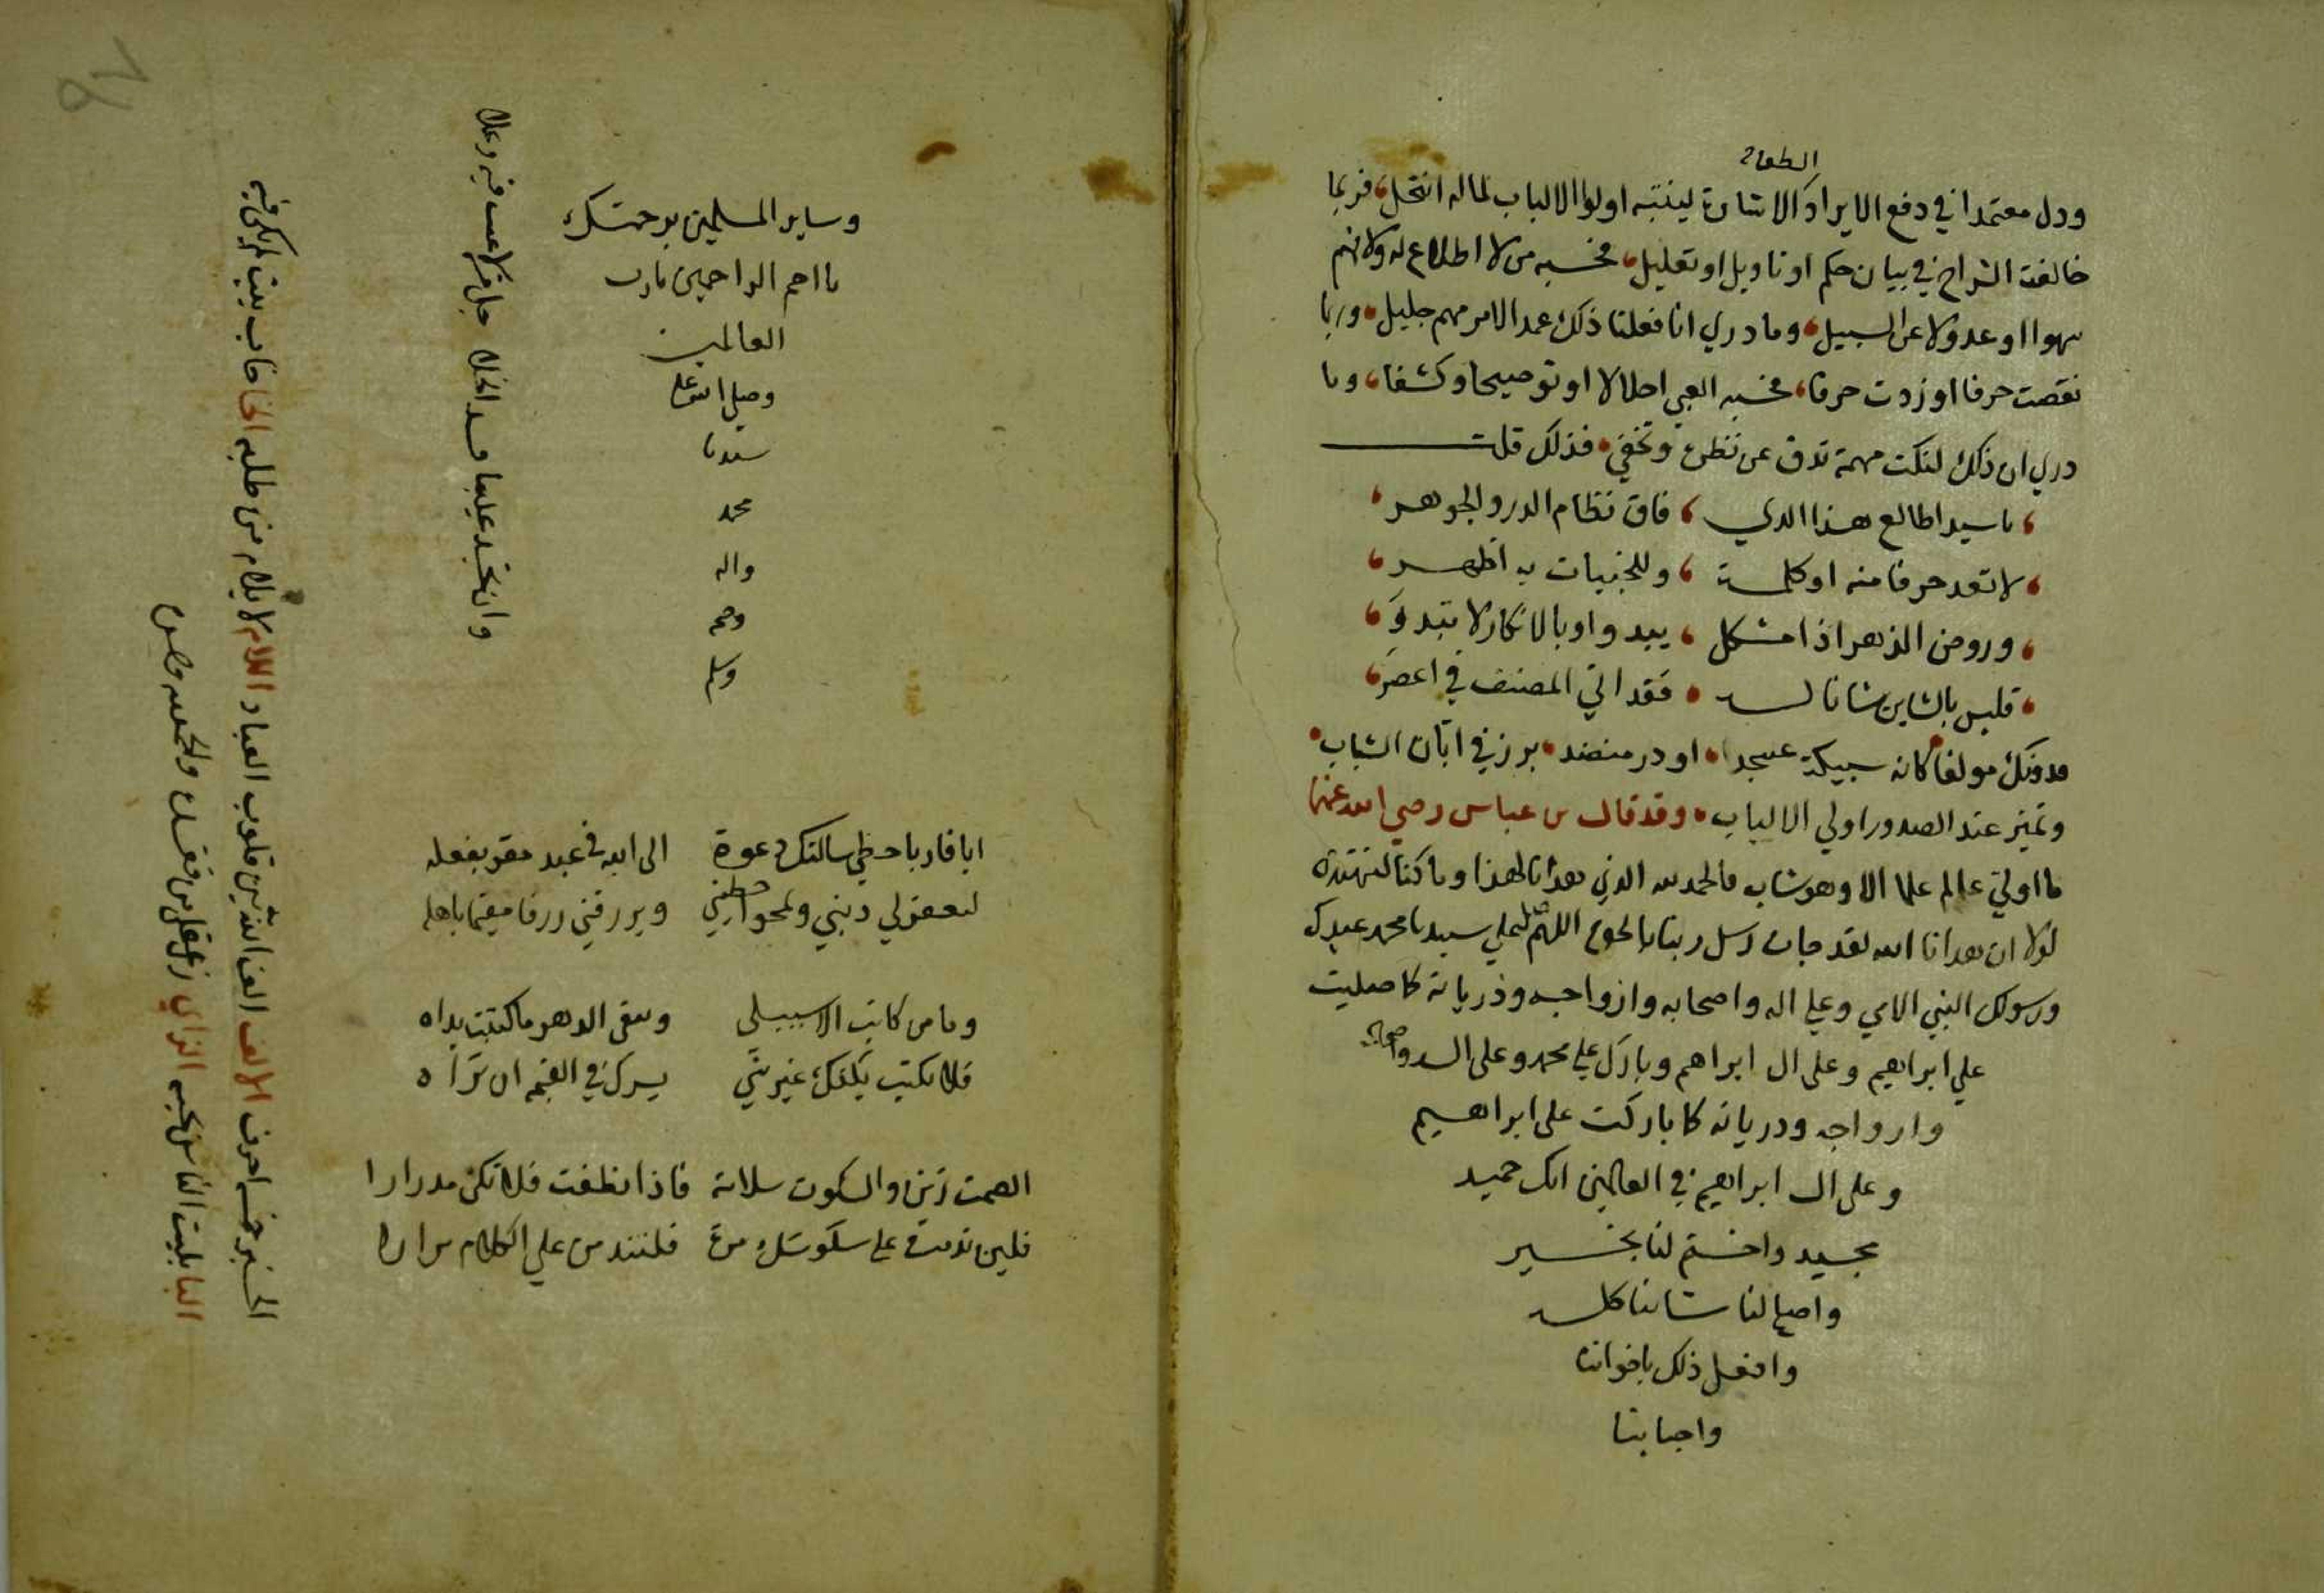 الطعان
ودل معتمدا في دفع الايراد الاشارة لينتبه اولوا الالباب لما له انتحل، فربما
خالفت الشراح في بيان حكم او تاويل او تعليل، فحسبه من لا اطلاع له ولا فهم
سهوا او عدولا عن السبيل، وما دري انا فعلنا ذلك عمدا لامر مهم جليل، وربما
نقصت حرفا او زدت حرفا، فحسبه الغبي اخلالا او توضيحا وكشفا، وما
دري ان ذلك لنكت مهمة تدق عن نظره وتخفي، فذلك قلت
يا سيدا طالع هذا الذي ، فاق نظام الدر والجوهر
لا تعد حرفا منه او كلمة ، وللخبيات به اظهر
وروض الذهن اذا مشكل ، يبدو او بالانكار لا تبدر
فليس بالشاين شانا له ، فقد اتي المصنف في اعصر
فدونك مولفا كانه سبيكة عسجد، او در منضد، برز في ابان الشباب
وتميز عند الصدور اولي الالباب، وقد قال بن عباس رضي الله عنهما
ما اوتي عالم علما الا وهو شاب فالحمد لله الذي هدانا لهذا وما كنا لنهتدي
لولا ان هدانا الله لقد جات رسل ربنا بالحق اللهم صل علي سيدنا محمد عبدك
ورسولك النبي الامي وعلي اله واصحابه وازواجه وذرياته كما صليت
علي ابراهيم وعلى ال ابراهيم وبارك علي محمد وعلى اله واصحابه
وازواجه وذرياته كما باركت على ابراهيم
وعلى ال ابراهيم في العالمين انك حميد
مجيد واختم لنا بخير
واصلح لنا شاننا كله
وافعل ذلك باخواننا
واحبابنا
وساير المسلمين برحمتك
يا ارحم الراحمين يا رب
العالمين
وصلى الله على
سيدنا
محمد
واله
وصحبه
وسلم
ايا قاريا خطي سالتك دعوة الى الله في عبد مقر بفعله
ليغفر لي ذنبي ويمحو خطيتي ويرزقني رزقا مقيما باهله
وما من كاتب الا سيبلى ويبقى الدهر ما كتبت يداه
فلا تكتب بكفك غير شي يسرك في القيمة ان تراه
الصمت زين والسكوت سلامة فاذا نطقت فلا تكن مدرارا
فلين ندمت على سكوتك مرة فلتندمن علي الكلام مرارا
وان تجد عيبا فسد الخللا جل من لا عيب فيه وعلا
الخير خمس احرف الالف الف الله بين قلوب العباد اللام لا يلام من طلبه الخا خاب بيت لم يكن فيه